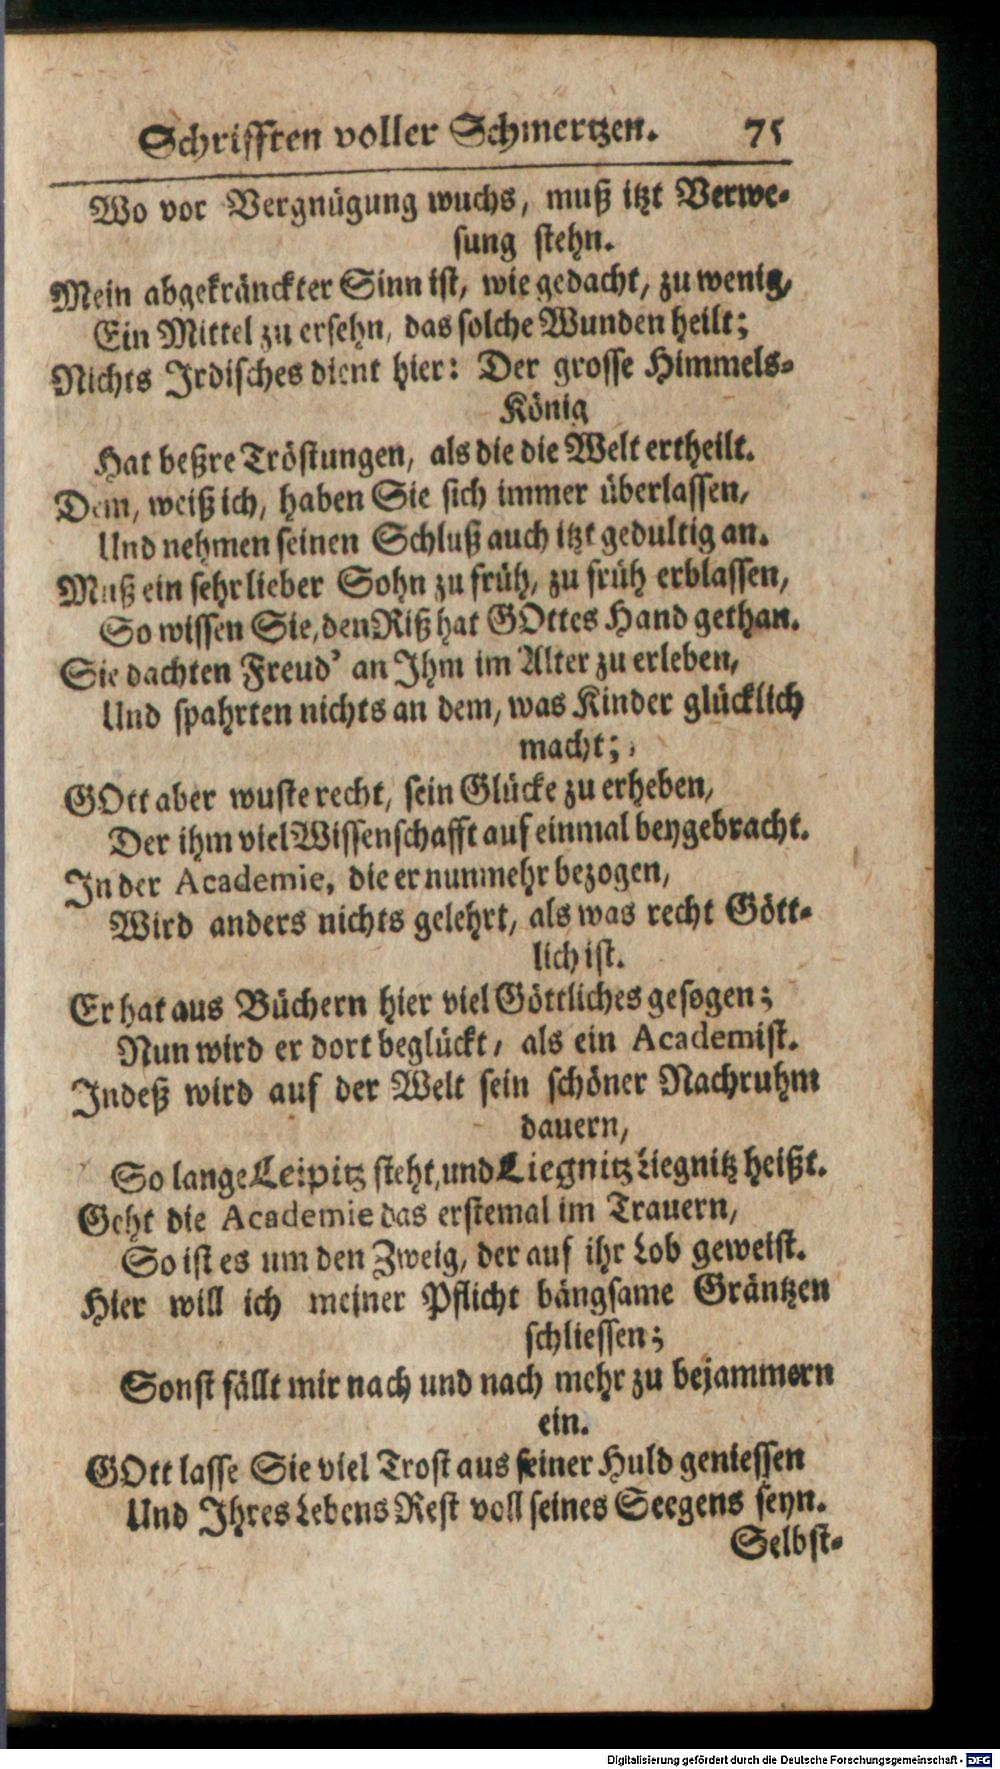 Schrifften voller Schmertzen. 75
Wo vor Vergnügung wuchs, muß itzt Verwe-
sung stehn.
Mein abgekränckter Sinn ist, wie gedacht, zu wenig,
Ein Mittel zu ersehn, das solche Wunden heilt;
Nichts Irdisches dient hier: Der grosse Himmels-
König
Hat beßre Tröstungen, als die die Welt ertheilt.
Dem, weiß ich, haben Sie sich immer überlassen,
Und nehmen seinen Schluß auch itzt gedultig an.
Muß ein sehr lieber Sohn zu früh, zu früh erblassen,
So wissen Sie, den Riß hat GOttes Hand gethan.
Sie dachten Freud' an Ihm im Alter zu erleben,
Und spahrten nichts an dem, was Kinder glücklich
macht;
GOtt aber wuste recht, sein Glücke zu erheben,
Der ihm viel Wissenschafft auf einmal beygebracht.
In der Academie, die er nunmehr bezogen,
Wird anders nichts gelehrt, als was recht Gött-
lich ist.
Er hat aus Büchern hier viel Göttliches gesogen;
Nun wird er dort beglückt, als ein Academist.
Indeß wird auf der Welt sein schöner Nachruhm
dauern,
So lange Leipitz steht, und Liegnitz Liegnitz heißt.
Geht die Academie das erstemal im Trauern,
So ist es um den Zweig, der auf ihr Lob geweist.
Hier will ich meiner Pflicht bängsame Gräntzen
schliessen;
Sonst fällt mir nach und nach mehr zu bejammern
ein.
GOtt lasse Sie viel Trost aus seiner Huld geniessen
Und Ihres Lebens Rest voll seines Seegens seyn.
Selbst-
Digitalisierung gefördert durch die Deutsche Forschungsgemeinschaft - DFG